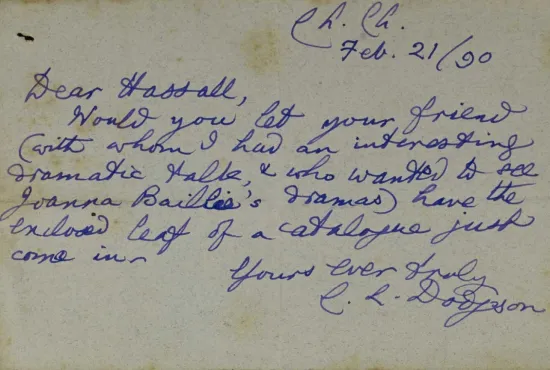 Ch. Ch.
Feb. 21/90
Dear Hassall,
Would you let your friend
(with whom I had an interesting
dramatic talk, & who wanted to see
Joanna Baillie's dramas) have the
enclosed leaf of a catalogue just
come in—
Yours ever truly
C. L. Dodgson